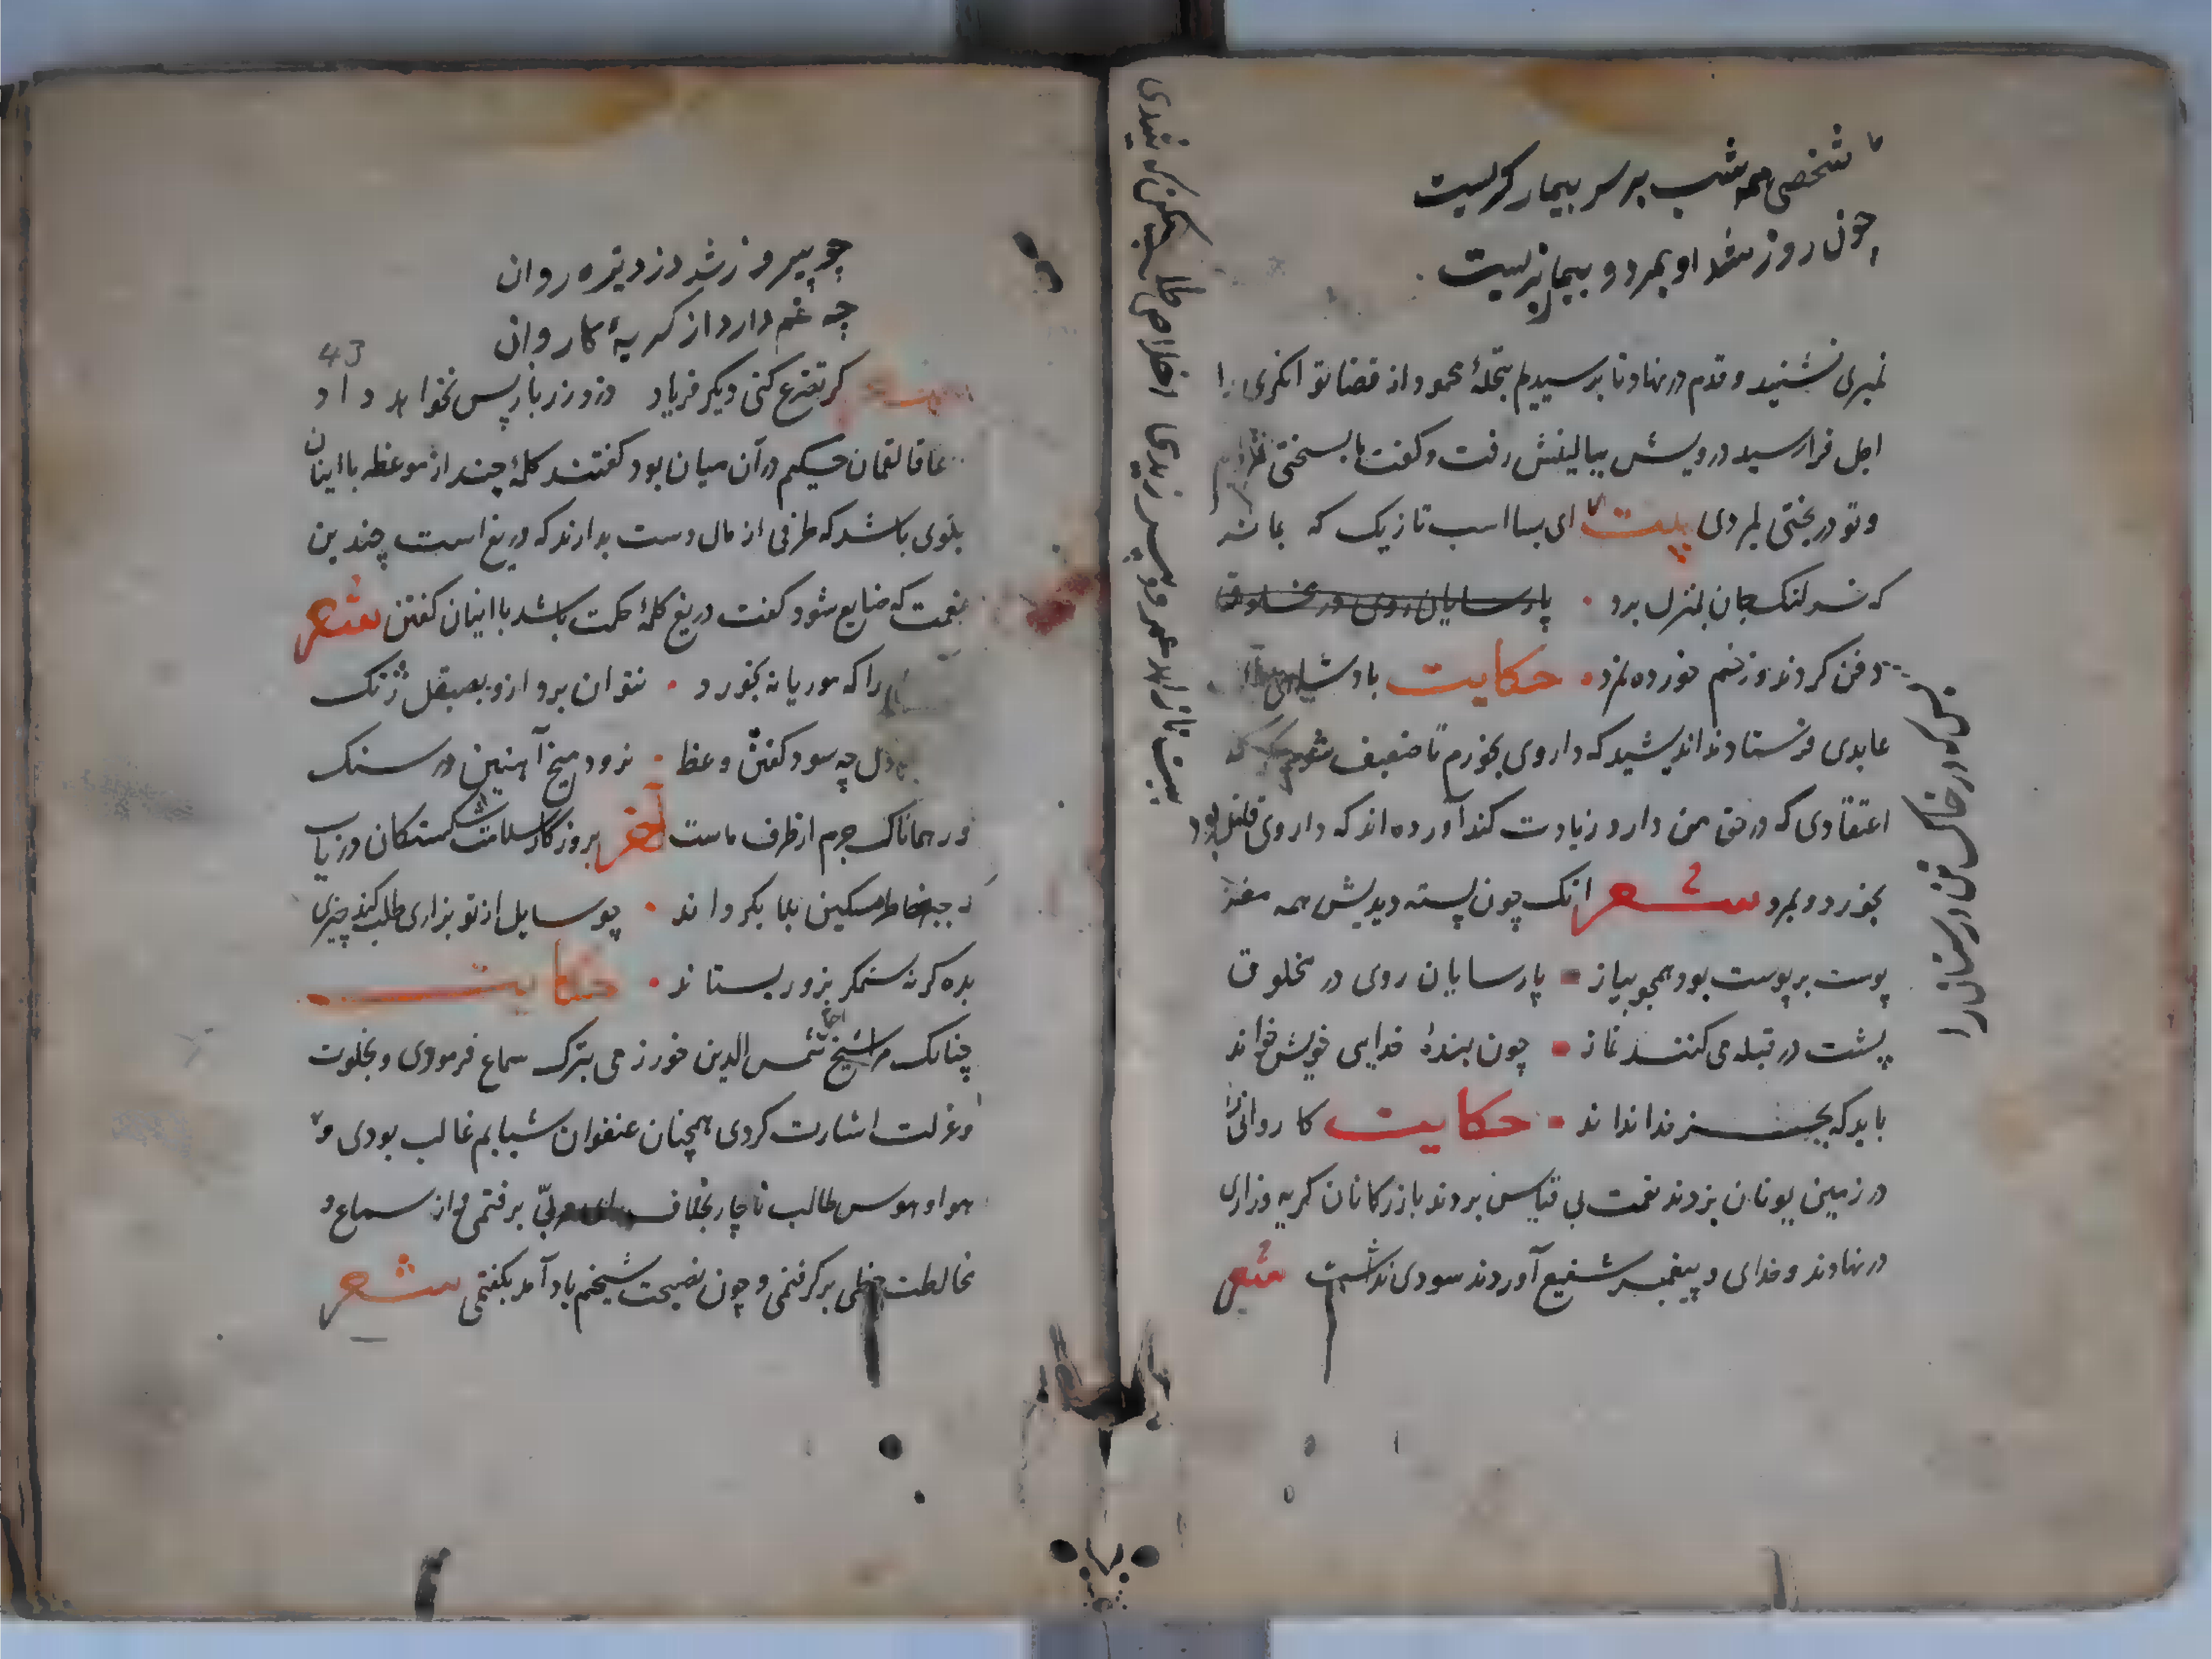 شخصی همه شب بر سر بیمار کریست
چون روز شد او بمرد و بیمار بزیست
نمیری نشنید و قدم در نهاد تا برسیدیم بنخلهٔ محمود از قضا توانکری را
اجل فرا رسید درویش ببالینش رفت و کفت ما بسختی
و تو در بختی بمردی بیت ای بسا اسب تازیک که بماند
که خر لنک جان بمنزل برد • پارسایان روی در مخلوق
دفن کردند و زخم خورده نمرد • حکایت پادشاهی
عابدی فرستادند اندیشید که داروی بخورم تا ضعیف شوم که
اعتقادی که در حق من دارد زیادت کند آورده اند که داروی قاتل بود
بخورد و بمرد شعر انک چون پسته دیدیش همه مغز
پوست بر پوست بود همجو پیاز • پارسایان روی در مخلوق
پشت در قبله می کنند نماز • چون بندهٔ خدایی خویش خواند
باید که بجز خدا نداند • حکایت کاروانی
در زمین یونان بزدند نعمت بی قیاس بردند بازرکانان کریه و زاری
در نهادند و خدای و پیغمبر شفیع آوردند سودی نداشت شعر
بس که در خاک تن درستان را
چو پیروز شد دزد تیره روان
چه غم دارد از کریهٔ کاروان
43
کر تضرع کنی دیکر فریاد دزد زر باز پس نخواهد داد
لقمان حکیم در آن میان بود کفتند کلمهٔ چند از موعظه با اینان
بکوی باشد که طرفی از مال دست بدارند که دریغ است چندین
نعمت که ضایع شود کفت دریغ کلمهٔ حکمت باشد با اینان کفتن شعر
را که موریانه بخورد • نتوان برد ازو بصیقل زنک
دل چه سود کفتن وعظ • نرود میخ آهنین در سنک
و همانا که جرم از طرف ماست آخر بروزکار سلامت شکستکان دریاب
که جبر خاطر مسکین بلا بکرداند • چو سایل از تو بزاری طلب کند چیزی
بده کرنه ستمکر بزور بستاند • حکایت
چنانک مرا شیخ شمس الدین جوزی بترک سماع فرمودی و بخلوت
و عزلت اشارت کردی همچنان عنفوان شبابم غالب بودی و
هوا و هوس طالب ناچار بخلاف رای مربی برفتمی و از سماع و
مخالطت حظی برکرفتمی و چون نصیحت شیخم یاد آمد بکفتمی شعر